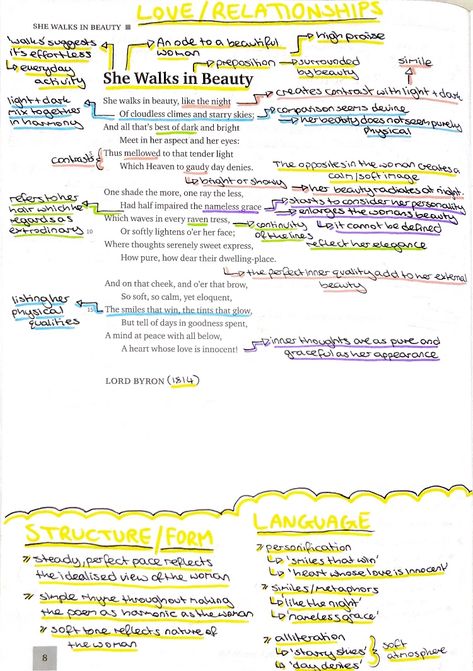 LOVE/RELATIONSHIPS
SHE WALKS IN BEAUTY
'Walks' suggests
it's effortless
↳ everyday
activity
An ode to a beautiful
woman
↳ high praise
preposition → surrounded
by beauty
simile
She Walks in Beauty
light + dark
mix together
in harmony
She walks in beauty, like the night
creates contrast with light + dark
Of cloudless climes and starry skies;
comparison seems devine
↳ her beauty does not seem purely
physical
And all that's best of dark and bright
Meet in her aspect and her eyes:
contrasts
Thus mellowed to that tender light
Which Heaven to gaudy day denies.
↳ bright or showy
The opposites in the woman creates a
calm/soft image
↳ her beauty radiates at night.
One shade the more, one ray the less,
refers to her
hair which he
regards as
extrodinary
Had half impaired the nameless grace
starts to consider her personality
enlarges the womans beauty
↳ it cannot be defined
10
Which waves in every raven tress,
continuity
of the lines
reflect her elegance
Or softly lightens o'er her face;
Where thoughts serenely sweet express,
How pure, how dear their dwelling-place.
↳ the perfect inner quality add to her external
beauty
And on that cheek, and o'er that brow,
So soft, so calm, yet eloquent,
listing her
physical
qualities
15
The smiles that win, the tints that glow,
But tell of days in goodness spent,
A mind at peace with all below,
A heart whose love is innocent!
inner thoughts are as pure and
graceful as her appearance
LORD BYRON (1814)
STRUCTURE/FORM
» steady, perfect pace reflects
the idealised view of the woman
» simple rhyme throughout making
the poem as harmonic as the woman
» soft tone reflects nature of
the woman
LANGUAGE
» personification
↳ 'smiles that win'
↳ 'heart whose love is innocent'
» similes/metaphors
↳ 'like the night'
↳ 'nameless grace'
» alliteration
↳ 'starry skies'
↳ 'day denies'
soft
atmosphere
8